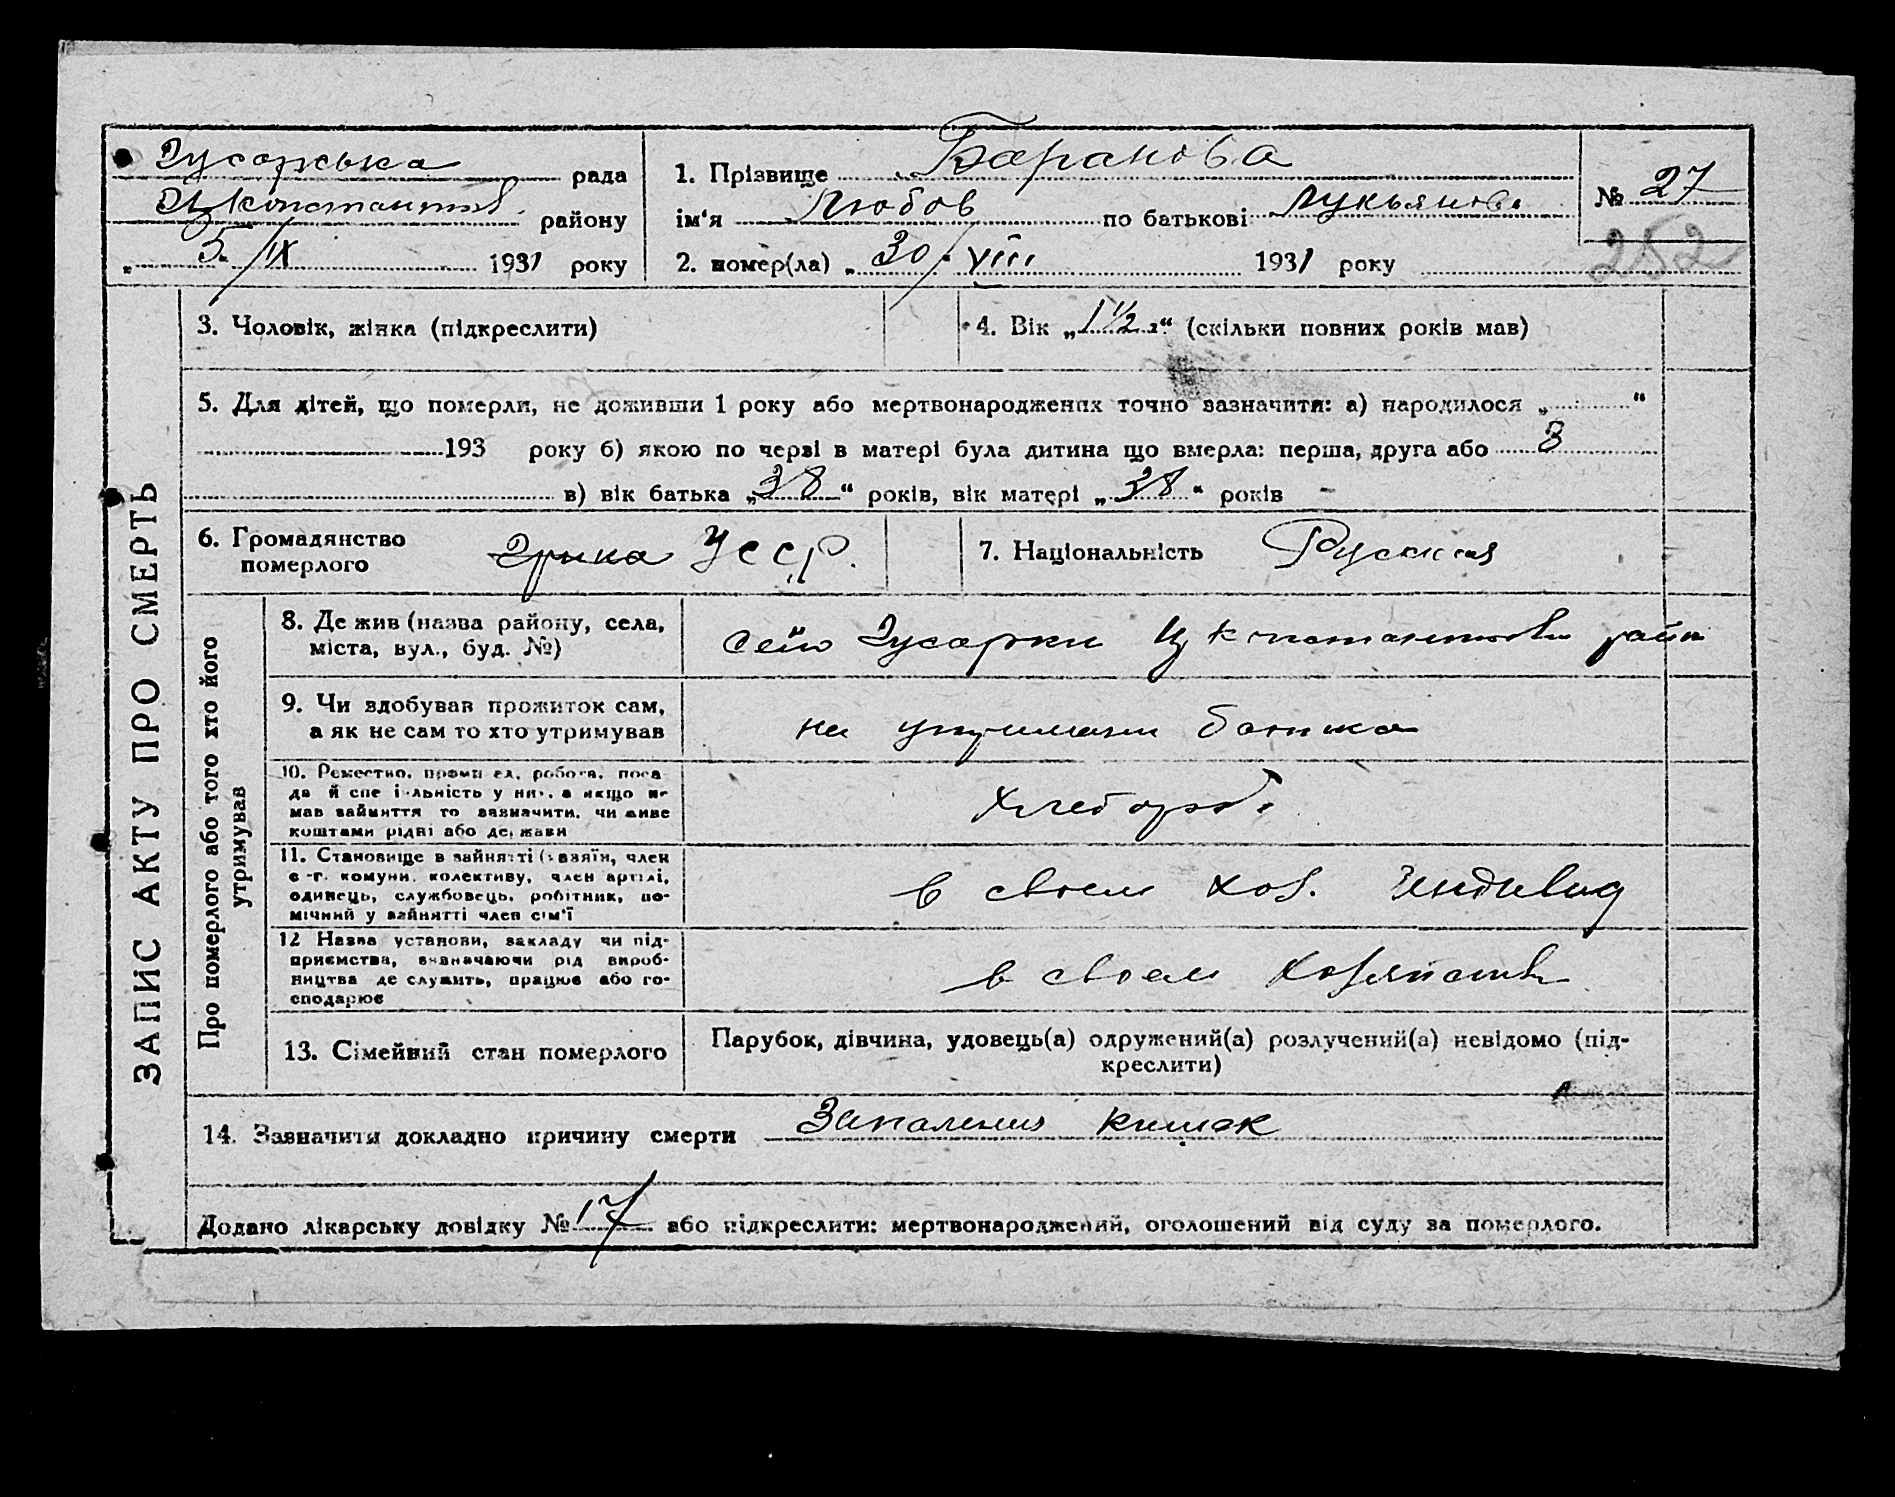 Гусарська рада
Цуконстантнв. району
„ 5 /IX 1931 року
1. Прізвище Баранова
ім'я Любов по батькові Лукьянова
2. помер(ла) „ 30/VIII 1931 року
№ 27
252
3. Чоловік, жінка (підкреслити)
4. Вік „1 1/2“ (скільки повних років мав)
5. Для дітей, що померли, не доживши 1 року або мертвонароджених точно зазначити: а) народилося „ “
193 року б) якою по черзі в матері була дитина що вмерла: перша, друга або 3
в) вік батька „38“ років, вік матері „38“ років
6. Громадянство
померлого
УССР.
7. Національність Русская
ЗАПИС АКТУ ПРО СМЕРТЬ
Про померлого або того хто його
утримував
8. Де жив (назва району, села,
міста, вул., буд. №)
село Гусарки Цконстантинови район
9. Чи здобував прожиток сам,
а як не сам то хто утримував
на утримани батька
10. Реместно, промисел, робота, поса
да й спеціяльність у них, а якщо не
мав займиття то зазначити, чи живе
коштами рідні або держави
Хлебороб
11. Становище в зайнятті (хазяїн, член
с.-г. комуни, колективу, член артілі,
одинець, службовець, робітник, по-
мічний у зайнятті член сім'ї
в своем хоз. Индивид
12 Назва установи, закладу чи під-
приємства, визначаючи рід вироб-
ництва де служить, працює або го-
сподарює
в своем хозяйстве
13. Сімейний стан померлого
Парубок, дівчина, удовець(а) одружений(а) розлучений(а) невідомо (під-
креслити)
14. Зазначити докладно причину смерти Запаления кишек
Додано лікарську довідку № 17 або підкреслити: мертвонароджений, оголошений від суду за померлого.